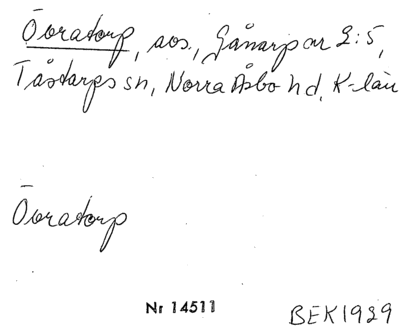 Övratorp, aos., Gånarp nr 2:5,
Tåstarps sn, Norra Åsbo hd, K-län
Övratorp
Nr 14511
BEK1929